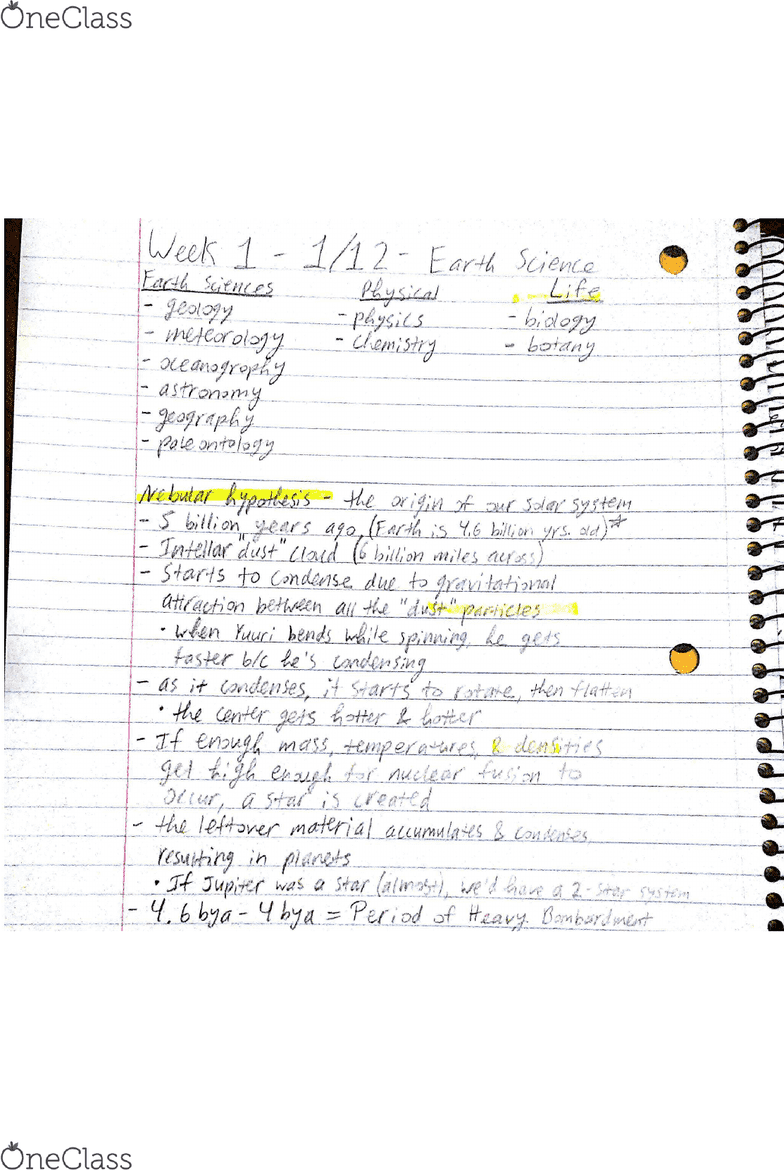 OneClass
Week 1 - 1/12 - Earth Science
Earth Sciences Physical Life
- geology - physics - biology
- meteorology - chemistry - botany
- oceanography
- astronomy
- geography
- paleontology
Nebular hypothesis - the origin of our solar system
- 5 billion years ago (Earth is 4.6 billion yrs. old)*
- Intellar "dust" cloud (6 billion miles across)
- Starts to condense due to gravitational
attraction between all the "dust" particles
• when Yuuri bends while spinning, he gets
faster b/c he's condensing
- as it condenses, it starts to rotate, then flatten
• the center gets hotter & hotter
- If enough mass, temperatures, & densities
get high enough for nuclear fusion to
occur, a star is created
- the leftover material accumulates & condenses,
resulting in planets
• If Jupiter was a star (almost), we'd have a 2-star system
- 4.6 bya - 4 bya = Period of Heavy Bombardment
OneClass